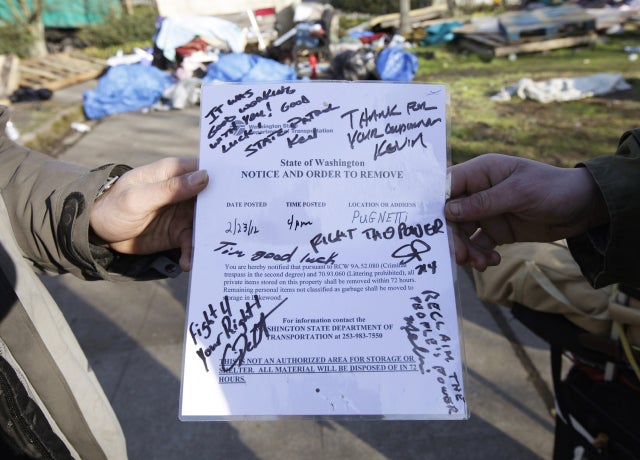 IT WAS
GOOD WORKING
WITH YOU! GOOD
LUCK!
STATE PATROL
KEN
THANK FOR
YOUR
KEVIN
Washington State
Department of Transportation
State of Washington
NOTICE AND ORDER TO REMOVE
DATE POSTED TIME POSTED LOCATION OR ADDRESS
2/23/12 4pm PUGNETTI
FIGHT THE POWER
Tim good luck
x4
You are hereby notified that pursuant to RCW 9A.52.080 (Criminal
trespass in the second degree) and 70.93.060 (Littering prohibited), all
private items stored on this property shall be removed within 72 hours.
Remaining personal items not classified as garbage shall be moved to
storage in Lakewood.
Fight 4
Your Right!
RECLAIM THE
PEOPLE'S POWER
For information contact the
WASHINGTON STATE DEPARTMENT OF
TRANSPORTATION at 253-983-7550
THIS IS NOT AN AUTHORIZED AREA FOR STORAGE OR
SHELTER. ALL MATERIAL WILL BE DISPOSED OF IN 72
HOURS.